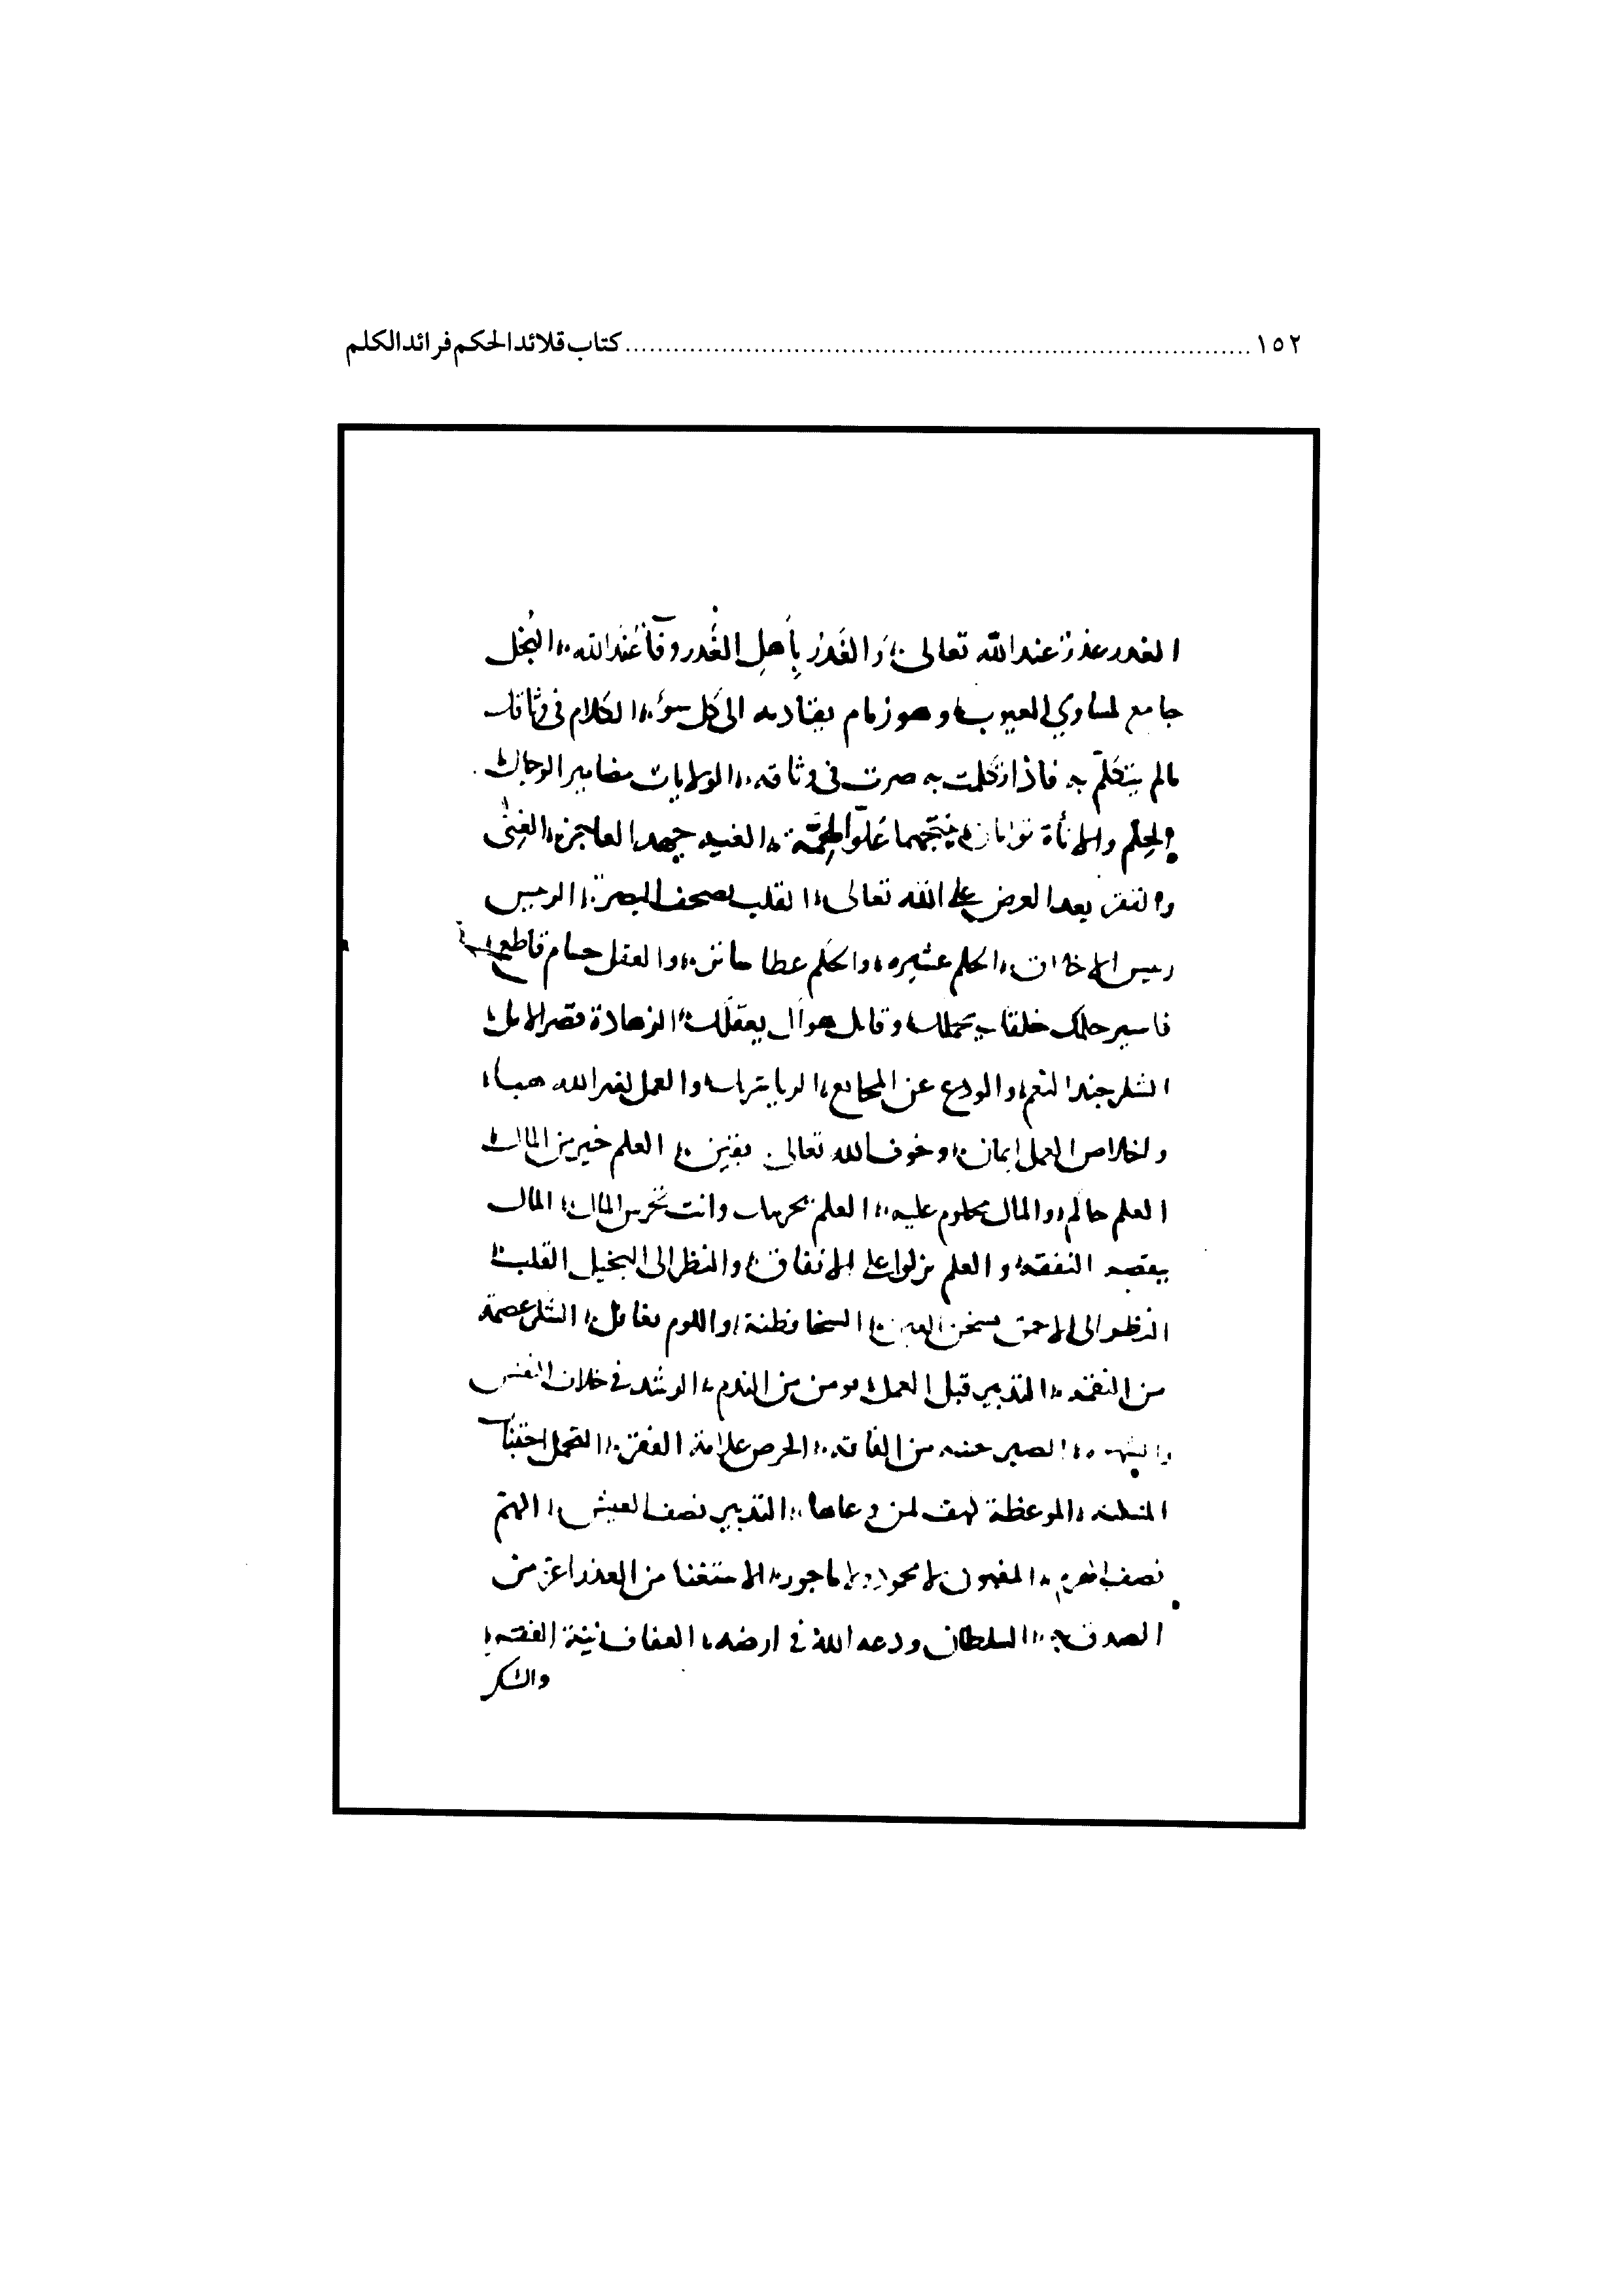 ١٥٢ ........ كتاب قلائد الحكم فرائد الكلم
الغدر غدرٌ عند الله تعالى وَالغَدرُ بِأَهلِ الغَدر وفآءٌ عندَ الله البُخل
جامع لمساوي العيوب وهو زمام يقاد به الى كل سوء الكلام في وثاقك
مالم يتكلّم به فاذا تكلمت به صرت في وثاقه الولايات مضامير الرجال
الحِلم والاناة توامان ينتجهما عُلوّ الهِمَّة الغيبه جهد العاجز الغِنى
والفقر بعد العرض على الله تعالى القلب مصحف البصر
الحلم عشيره والحلم غطا ساتر والعقل حسام قاطع
فاستر خلل خلقك بحملك وقاتل هواك بعقلك الزهادة قصر الامل
الشكر عند النعم والورع عن المحارم والعمل لغير الله هبا
واخلاص العمل ايمان وخوف الله تعالى يقين العلم خير من المال
العلم حاكم والمال محكوم عليه العلم يحرسك وانت تحرس المال المال
ينقصه النفقه والعلم يزكوا على الانفاق والنظر الى البخيل القلب
النظر الى الاحمق يسخن العين السخا فطنة واللوم تغافل الشكر عصمة
من النقمه التدبير قبل العمل يومن من الندم الرشد في خلاف النفس
الصبر جنه من الفاقه الحرص علامة الفقر
المسكنه الموعظة كهف لمن وعاها التدبير نصف العيش الهمّ
نصف الهرم المغبون لا محمود ولا ماجور الاستغنا من العذر اعز من
الصدق به السلطان وزعه الله في ارضه العفاف زينة الفقر
والشكر